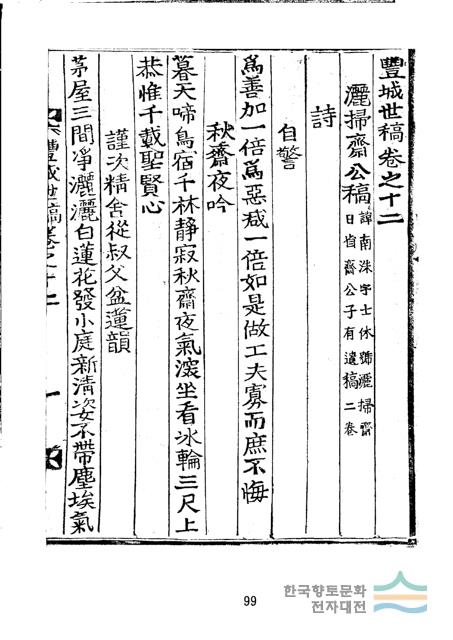 豐城世稿卷之十二
灑掃齋公稿 諱南洙字士休號灑掃齋
日省齋公子有遺稿二卷
詩
自警
爲善加一倍爲惡减一倍如是做工夫寡而庶不悔
秋齋夜吟
暮天啼鳥宿千林靜寂秋齋夜氣深坐看冰輪三尺上
恭惟千載聖賢心
謹次精舍從叔父盆蓮韻
茅屋三間淨灑灑白蓮花發小庭新淸姿不帶塵埃氣
豐城世稿卷之十二
一
99
한국향토문화
전자대전